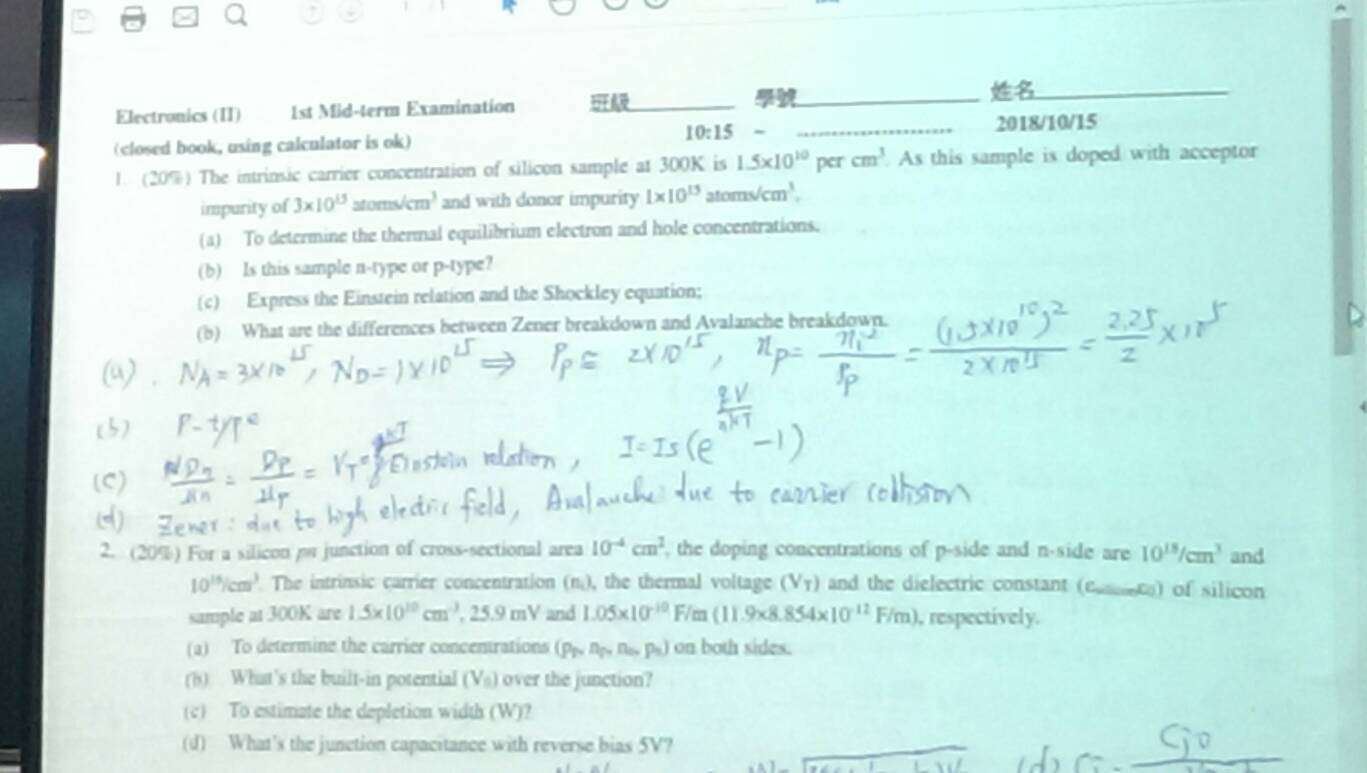 Electronics (II) 1st Mid-term Examination 班級 學號 姓名
(closed book, using calculator is ok) 10:15 ~ 2018/10/15
1. (20%) The intrinsic carrier concentration of silicon sample at 300K is 1.5×10¹⁰ per cm³. As this sample is doped with acceptor
impurity of 3×10¹⁵ atoms/cm³ and with donor impurity 1×10¹⁵ atoms/cm³.
(a) To determine the thermal equilibrium electron and hole concentrations.
(b) Is this sample n-type or p-type?
(c) Express the Einstein relation and the Shockley equation;
(b) What are the differences between Zener breakdown and Avalanche breakdown.
(a). N_A = 3×10¹⁵, N_D = 1×10¹⁵ ⇒ P_p ≅ 2×10¹⁵, n_p = n_i²/P_p = (1.5×10¹⁰)²/2×10¹⁵ = 2.25/2 ×10⁵
(b) P-type
(c) D_n/μ_n = D_p/μ_p = V_T = Einstein relation, I = Is(e^(qV/nkT) − 1)
(d) Zener: due to high electric field, Avalanche: due to carrier collision
2. (20%) For a silicon pn junction of cross-sectional area 10⁻⁴ cm², the doping concentrations of p-side and n-side are 10¹⁸/cm³ and
10¹⁶/cm³. The intrinsic carrier concentration (nᵢ), the thermal voltage (V_T) and the dielectric constant of silicon
sample at 300K are 1.5×10¹⁰ cm⁻³, 25.9 mV and 1.05×10⁻¹⁰ F/m (11.9×8.854×10⁻¹² F/m), respectively.
(a) To determine the carrier concentrations (p_p, n_p, n_n, p_n) on both sides.
(b) What's the built-in potential (V₀) over the junction?
(c) To estimate the depletion width (W)?
(d) What's the junction capacitance with reverse bias 5V?
(d) Cj = Cjo